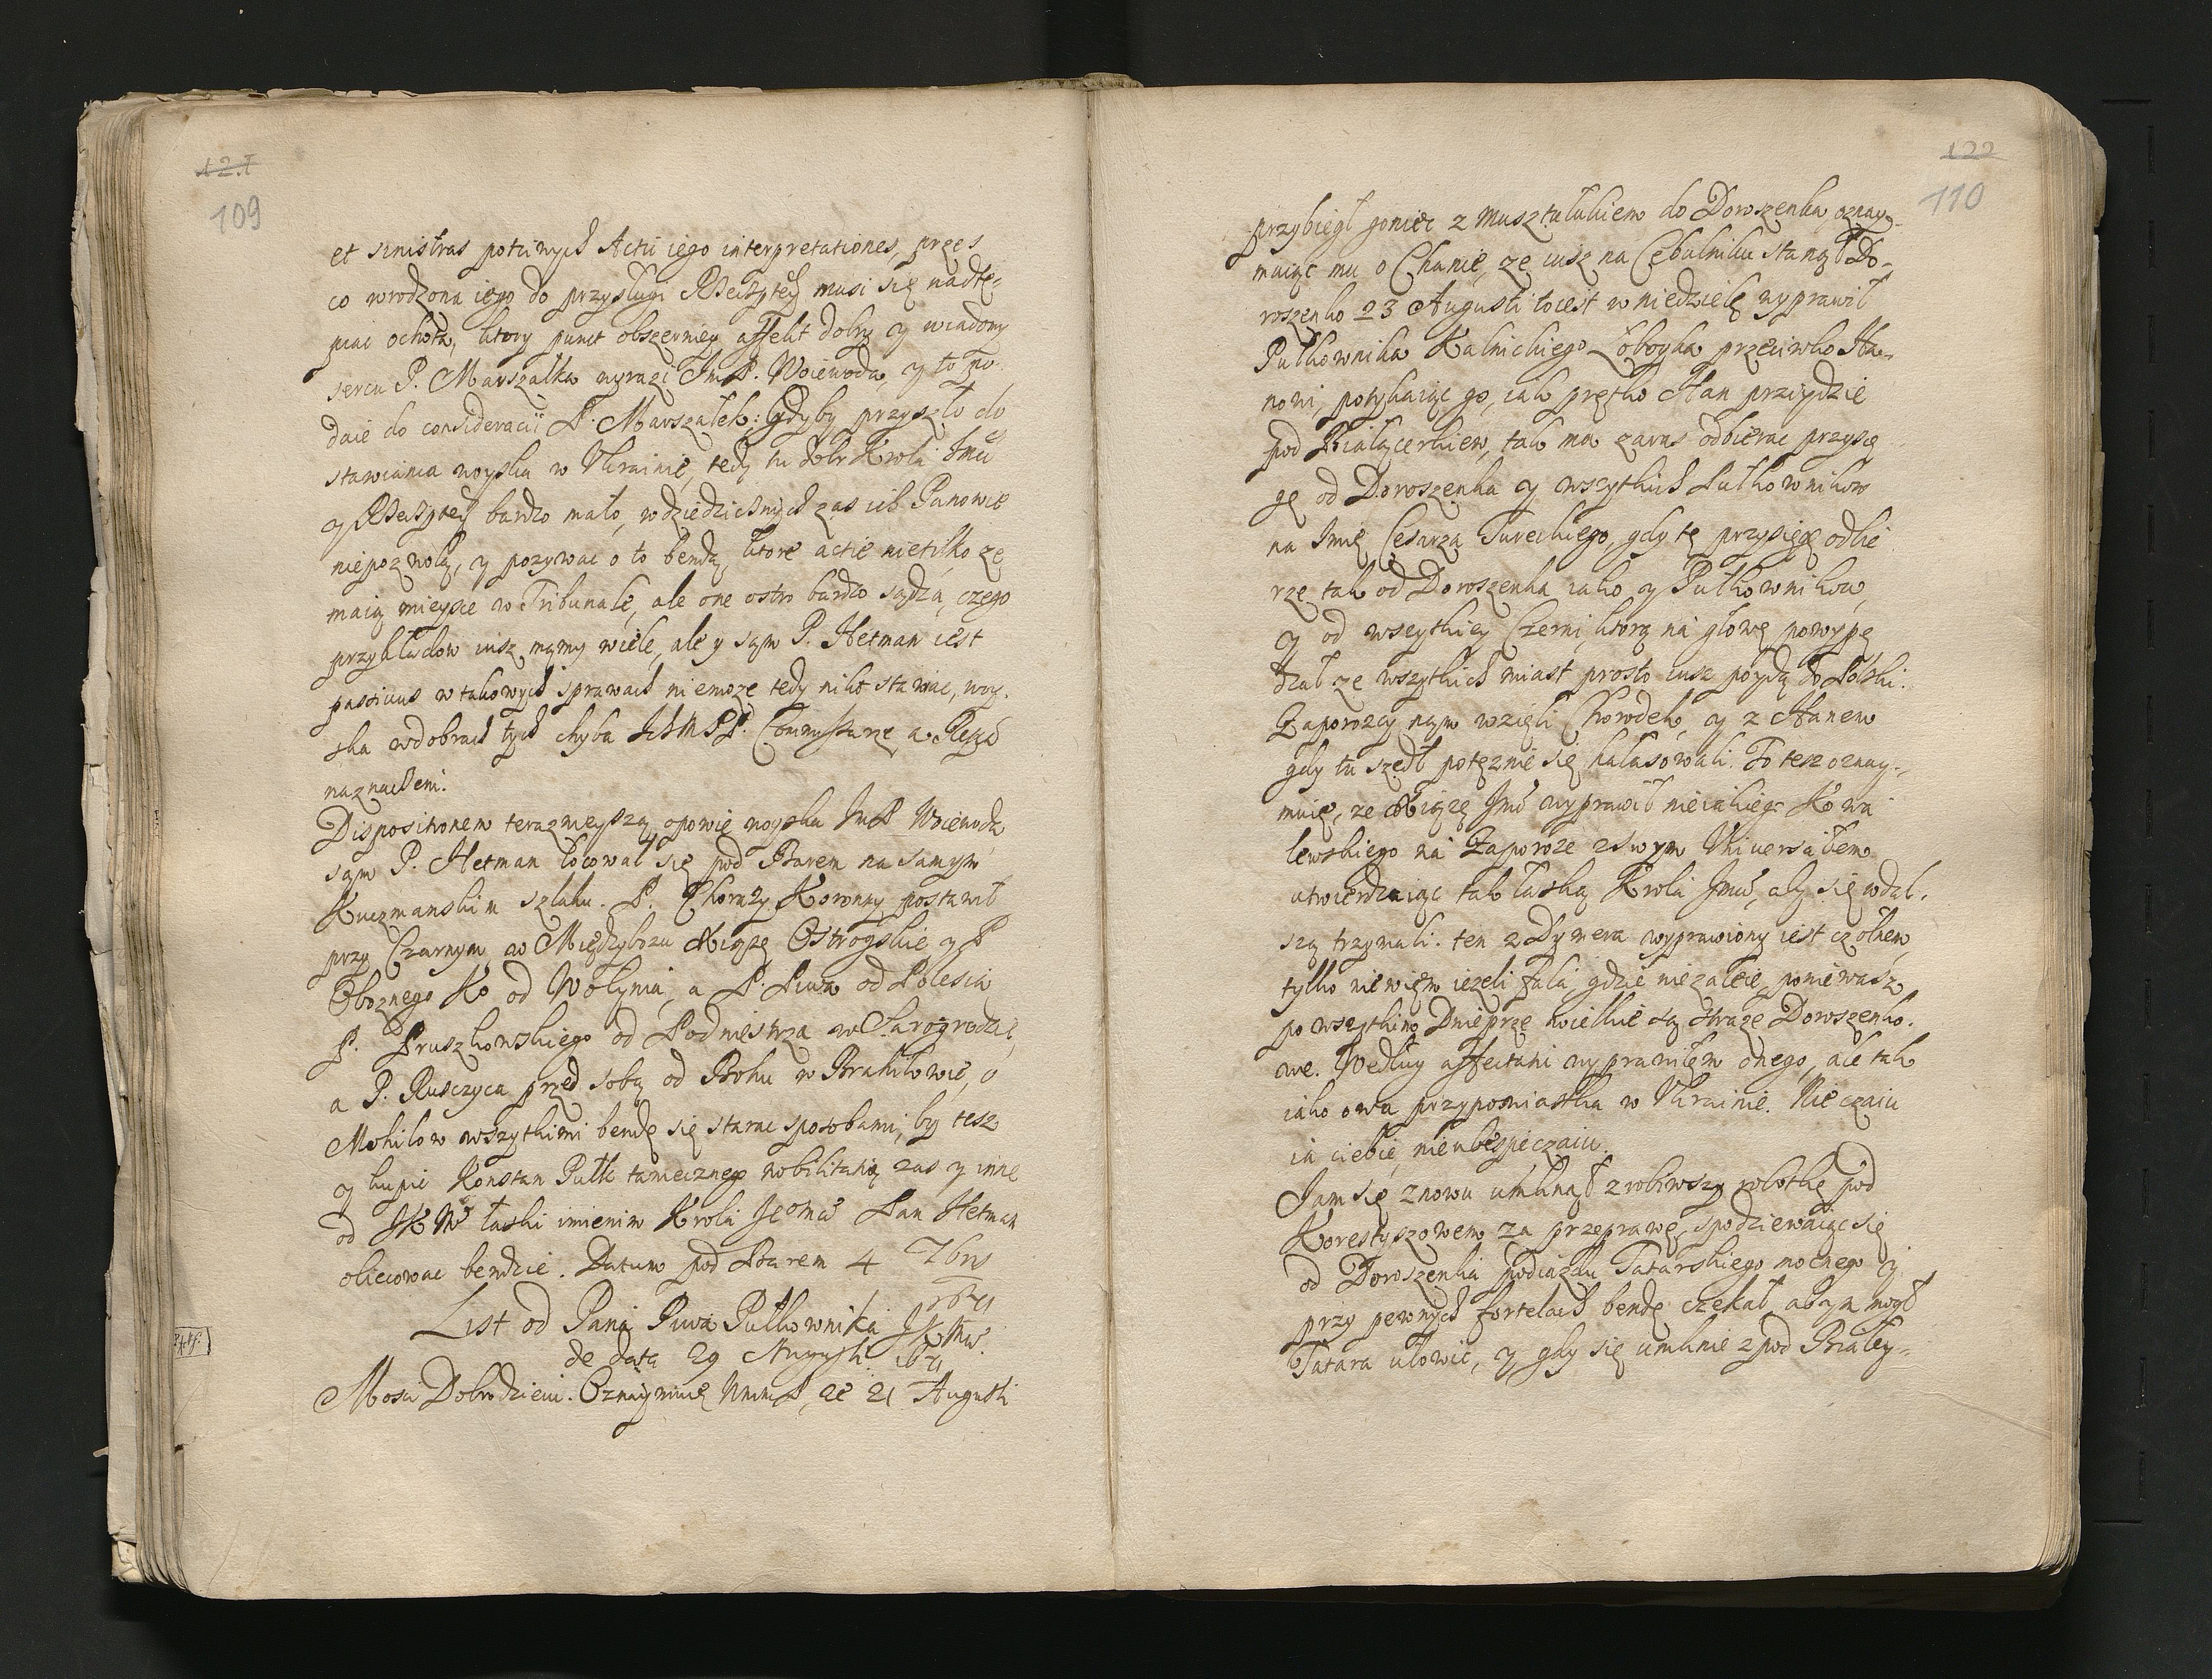 121
109
et sinistras poticwych Actii iego interpretationes, przes
co wrodzona iego do przysługi Rzeczyptey musi się nadtę-
piac ochota, ktory punct obszerniey affekt dobrę y wiadomy
sercu P. Marszałka wyrazi Im P. Woiewoda, y to po
daie do consideracii P. Marszałek: Gdyby przyszło do
stawiania woyska w Ukrainie, tedy tu dobr Krola Imci
y Rzeczyptey bardzo mało, w dziedzicznych zas ich Panowie
niepozwolą, y pozywac o to bendą, ktore actie nietilko ze
maią mieysce w Tribunale, ale one ostro bardzo sądzą, czego
przykładow iusz mamy wiele, ale y sam P. Hetman iest
passivus w takowych sprawach niemoze tedy nikt stawiac, woy-
ska w dobrach tych chyba IchM PP. Commissarze, a Regno
naznaczeni.
Dispositionem terazneyszą opowie woyska Im P Woiewoda
sam P. Hetman locował się pod Barem na samym
Kuczmanskim szlaku. P. Chorązy Koronny postawił
przy Czarnym, w Międzybozu Xiąze Ostrogskie, y P
Oboznego Ko od Wołynia, a P. Piwa od Polesia
P. Pruszkowskiego od Podniestrza w Sarogrodzie,
a P. Rusczyca przed sobą od Bohu w Brahiłowie, o
Mohilow wszytkimi bendę się starac sposobami, by tesz
y kupic Konstan Pułk tamecznego nobilitanią zas y inne
od JKMci łaski imienim Krola Jegomci Pan Hetman
obiecowac bendzie. Datum pod Barem 4 7bris
1671
List od Pana Piwa Pułkownika JKMci.
de data 29 Augusti 1671
Mosci Dobrodzieiu. Oznaymuię WmmP, ze 21 Augusti
122
110
przybiegł goniec z Musztułukiem do Doroszenka oznay-
maiąc mu o Chanie, ze iusz na Cebulniku stanął Do-
roszenko 23 Augusti to iest w niedziele wyprawił
Pułkownika Kalnickiego Łoboyka przeciwko Ha-
nowi, potykaiąc go, iak prętko Han przyidzie
pod Białącerkiew, tak ma zaras odbierac przysię
gę od Doroszenka y wszytkich Pułkownikow
na Imię Cesarza Tureckiego, gdy tę przysięgę odbie
rze tak od Doroszenka iako y Pułkownikow,
y od wszytkiey Czerni, ktorą na głowę powypę
dzał ze wszytkich miast prosto iusz poydą do Polski.
Zaporozcy nam wzięli Chorodek, y z Hanem
gdy tu szedł potęznie się hałasowali. To tesz oznay-
muię, ze Xiąze Imc wyprawił nieiakiego Kowa
lewskiego na Zaporoze z swym Universałem
utwierdzaiąc tak łaską Krola Jmci, aby się w dal-
szą trzymali. ten z Dymera wyprawiony iest czołnem,
tylko nie wiem iezeli fala, gdzie niezaleie, poniewasz
po wszytkim Dnieprze wielkie są straze Doroszenko-
we. Według affectatii wyprawiłem onego, ale tak
iako owa przypowiastka w Ukrainie. Nie czaiu
ia ciebie, nieubespieczaiu.
Jam się znowu umknął zrobiwszy robotkę pod
Korestyszowem za przeprawę, spodziewaiąc się
od Doroszenka podiazdu Tatarskiego mocnego y
przy pewnych fortelach bendę czekał, abym mogł
Tatara ułowic, y gdy się umknie z pod Białey-